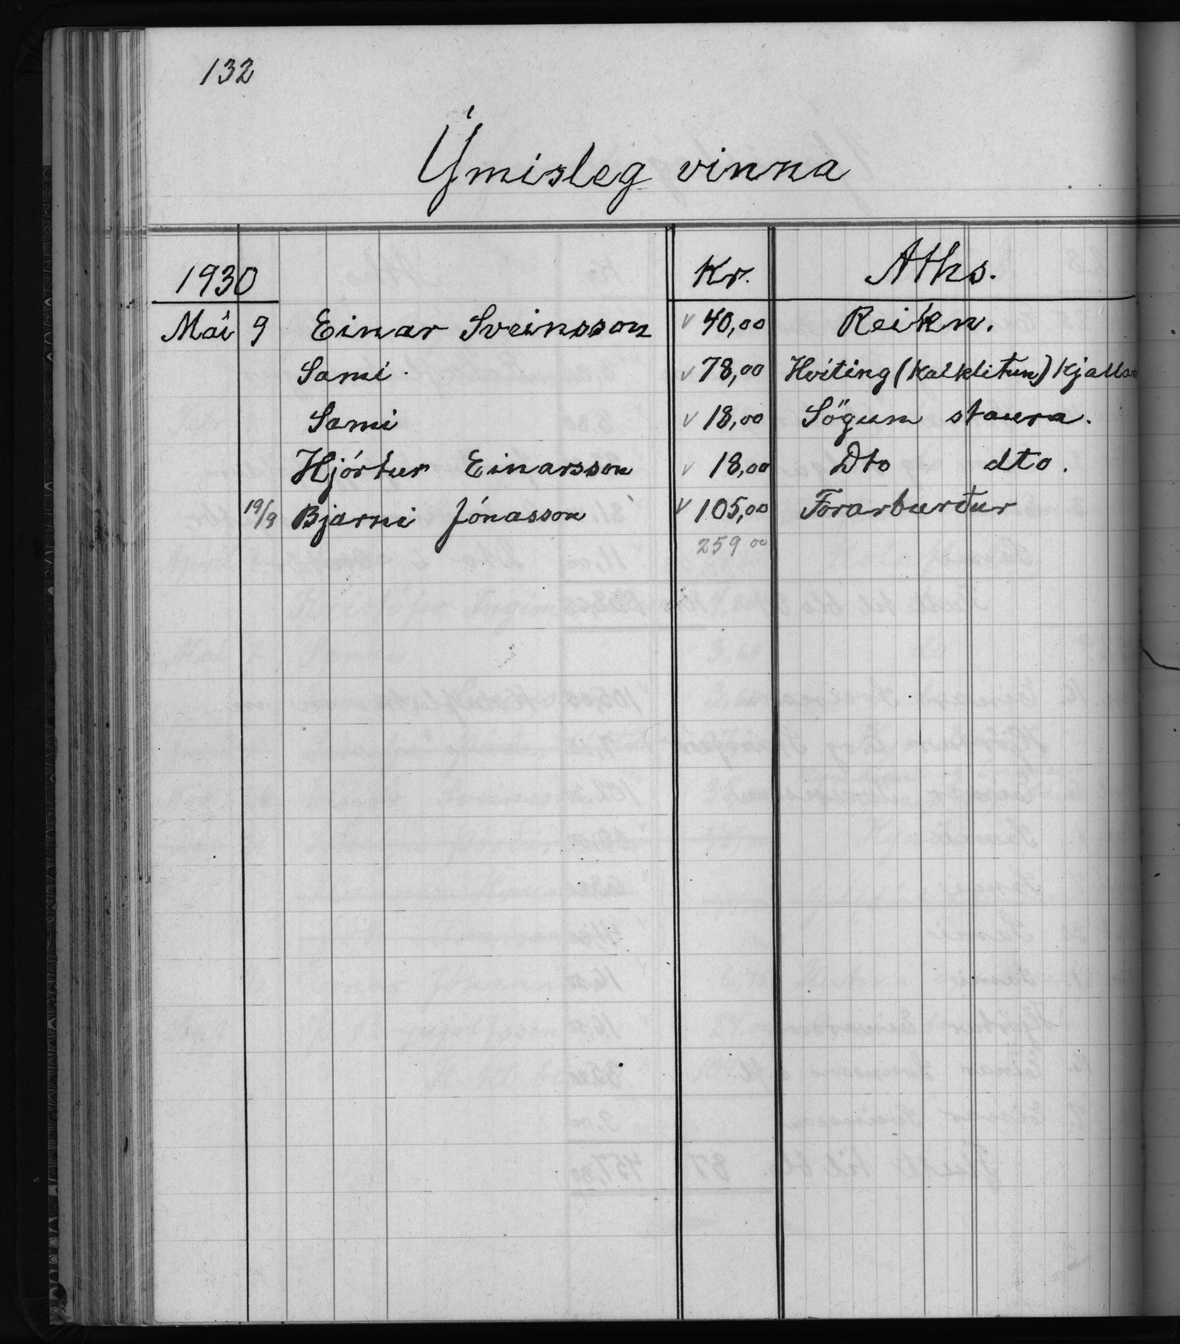 132
Ýmisleg vinna
1930 Kr. Aths.
Maí 9 Einar Sveinsson 40,00 Reikn.
Sami 78,00 Hvíting (kalklitun) kjallar
Sami 18,00 Sögum staura.
Hjörtur Einarsson 18,00 Dto dto.
19/9 Bjarni Jónasson 105,00 Forarburður
259 00